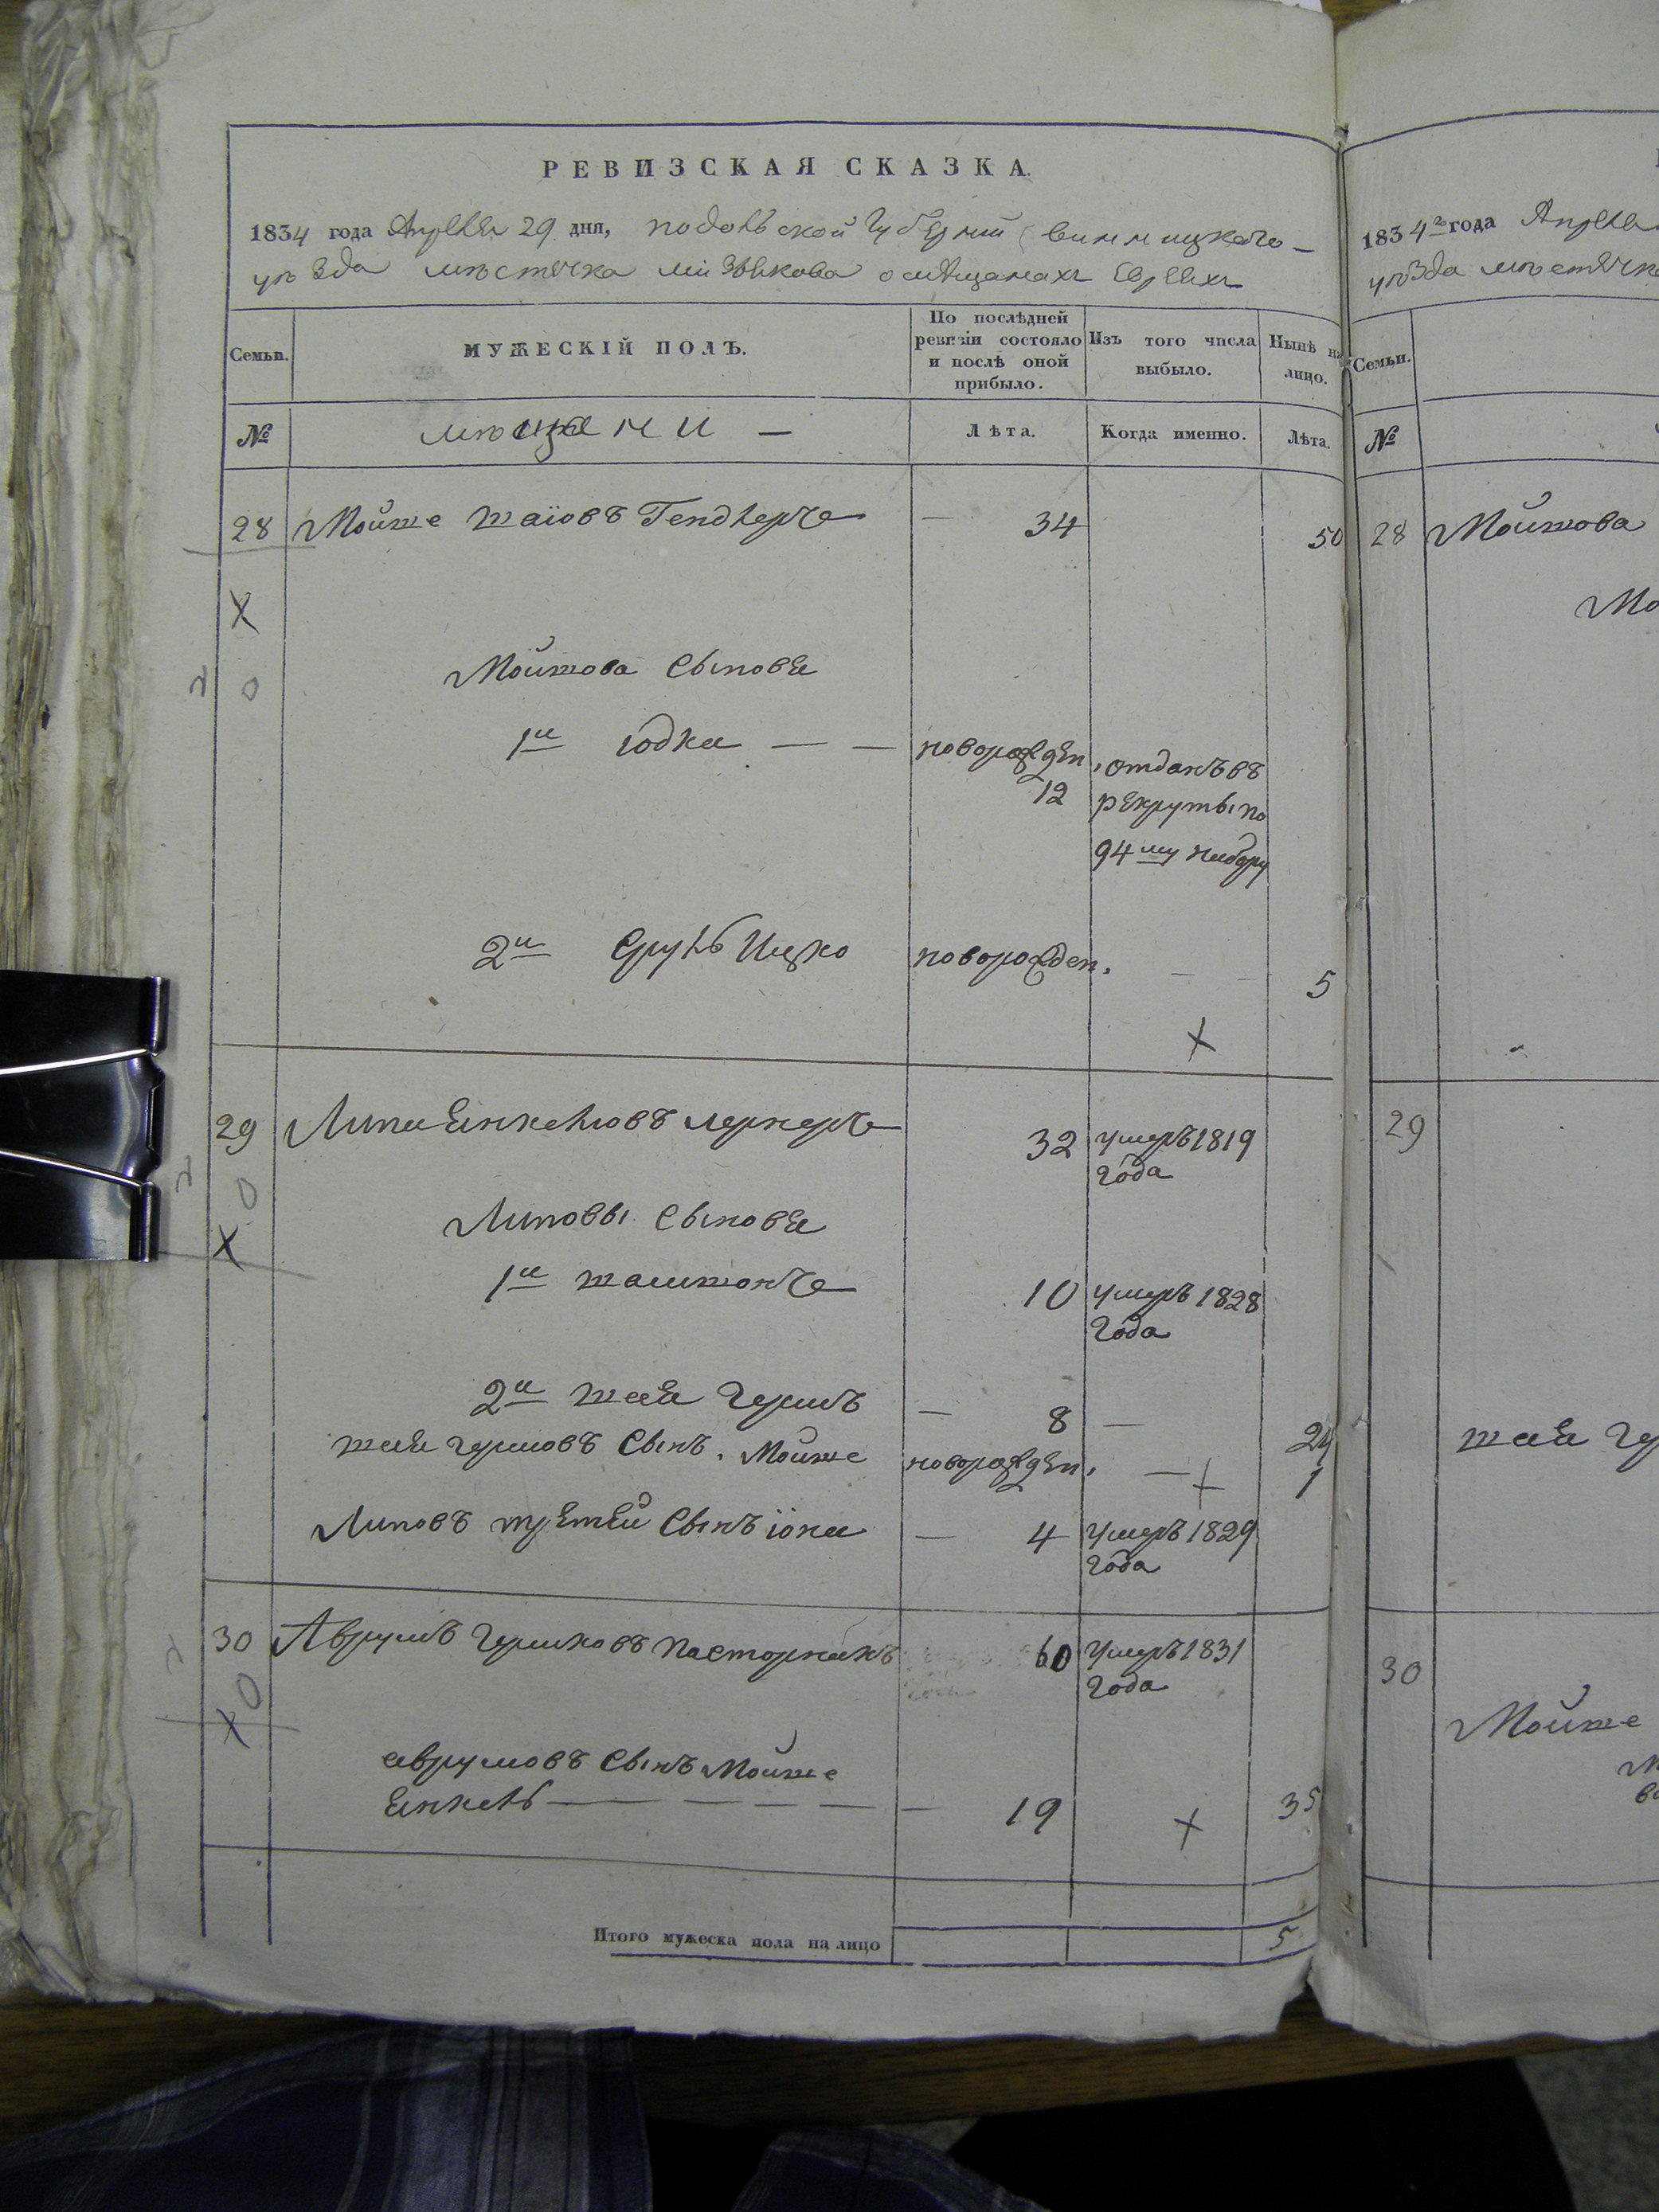 РЕВИЗСКАЯ СКАЗКА.
1834 года Апреля 29 дня, подольской Губерніи винницкаго
уѣзда мѣстечка Мизякова о мѣщанахъ Евреяхъ
Семьи.
МУЖЕСКІЙ ПОЛЪ.
По послѣдней ревизіи состояло и послѣ оной прибыло.
Изъ того числа выбыло.
Нынѣ на лицо.
№
мѣщани
Лѣта.
Когда именно.
Лѣта.
28 Мойше шаіовъ Гендлеръ — 34 50
X
0
Мойшова Сыновя
1й іодка — — новорожден. отданъ въ
12 рекруты по
94му набору
2й Сруль Ицко новорожден. — — 5
X
29 Липа Янкелiовъ лернеръ 32 умеръ 1819
года
0
X
Липовы Сыновя
1й шамшонъ 10 умеръ 1828
года
2й шая Гершъ — 8 — 24
шая гершовъ Сынъ Мойше новорожден. — 1
X
Липовъ третей Сынъ іона — 4 умеръ 1829
года
30 Аврумъ Гершковъ Пасторнакъ 60 умеръ 1831
года
X 0
аврумовъ Сынъ Мойше
Янкель — — — — — 19 X 35
Итого мужеска пола на лицо 5
1834го года Апреля
уѣзда
Семьи.
№
28 Мойшова
29
шая
30
Мойше